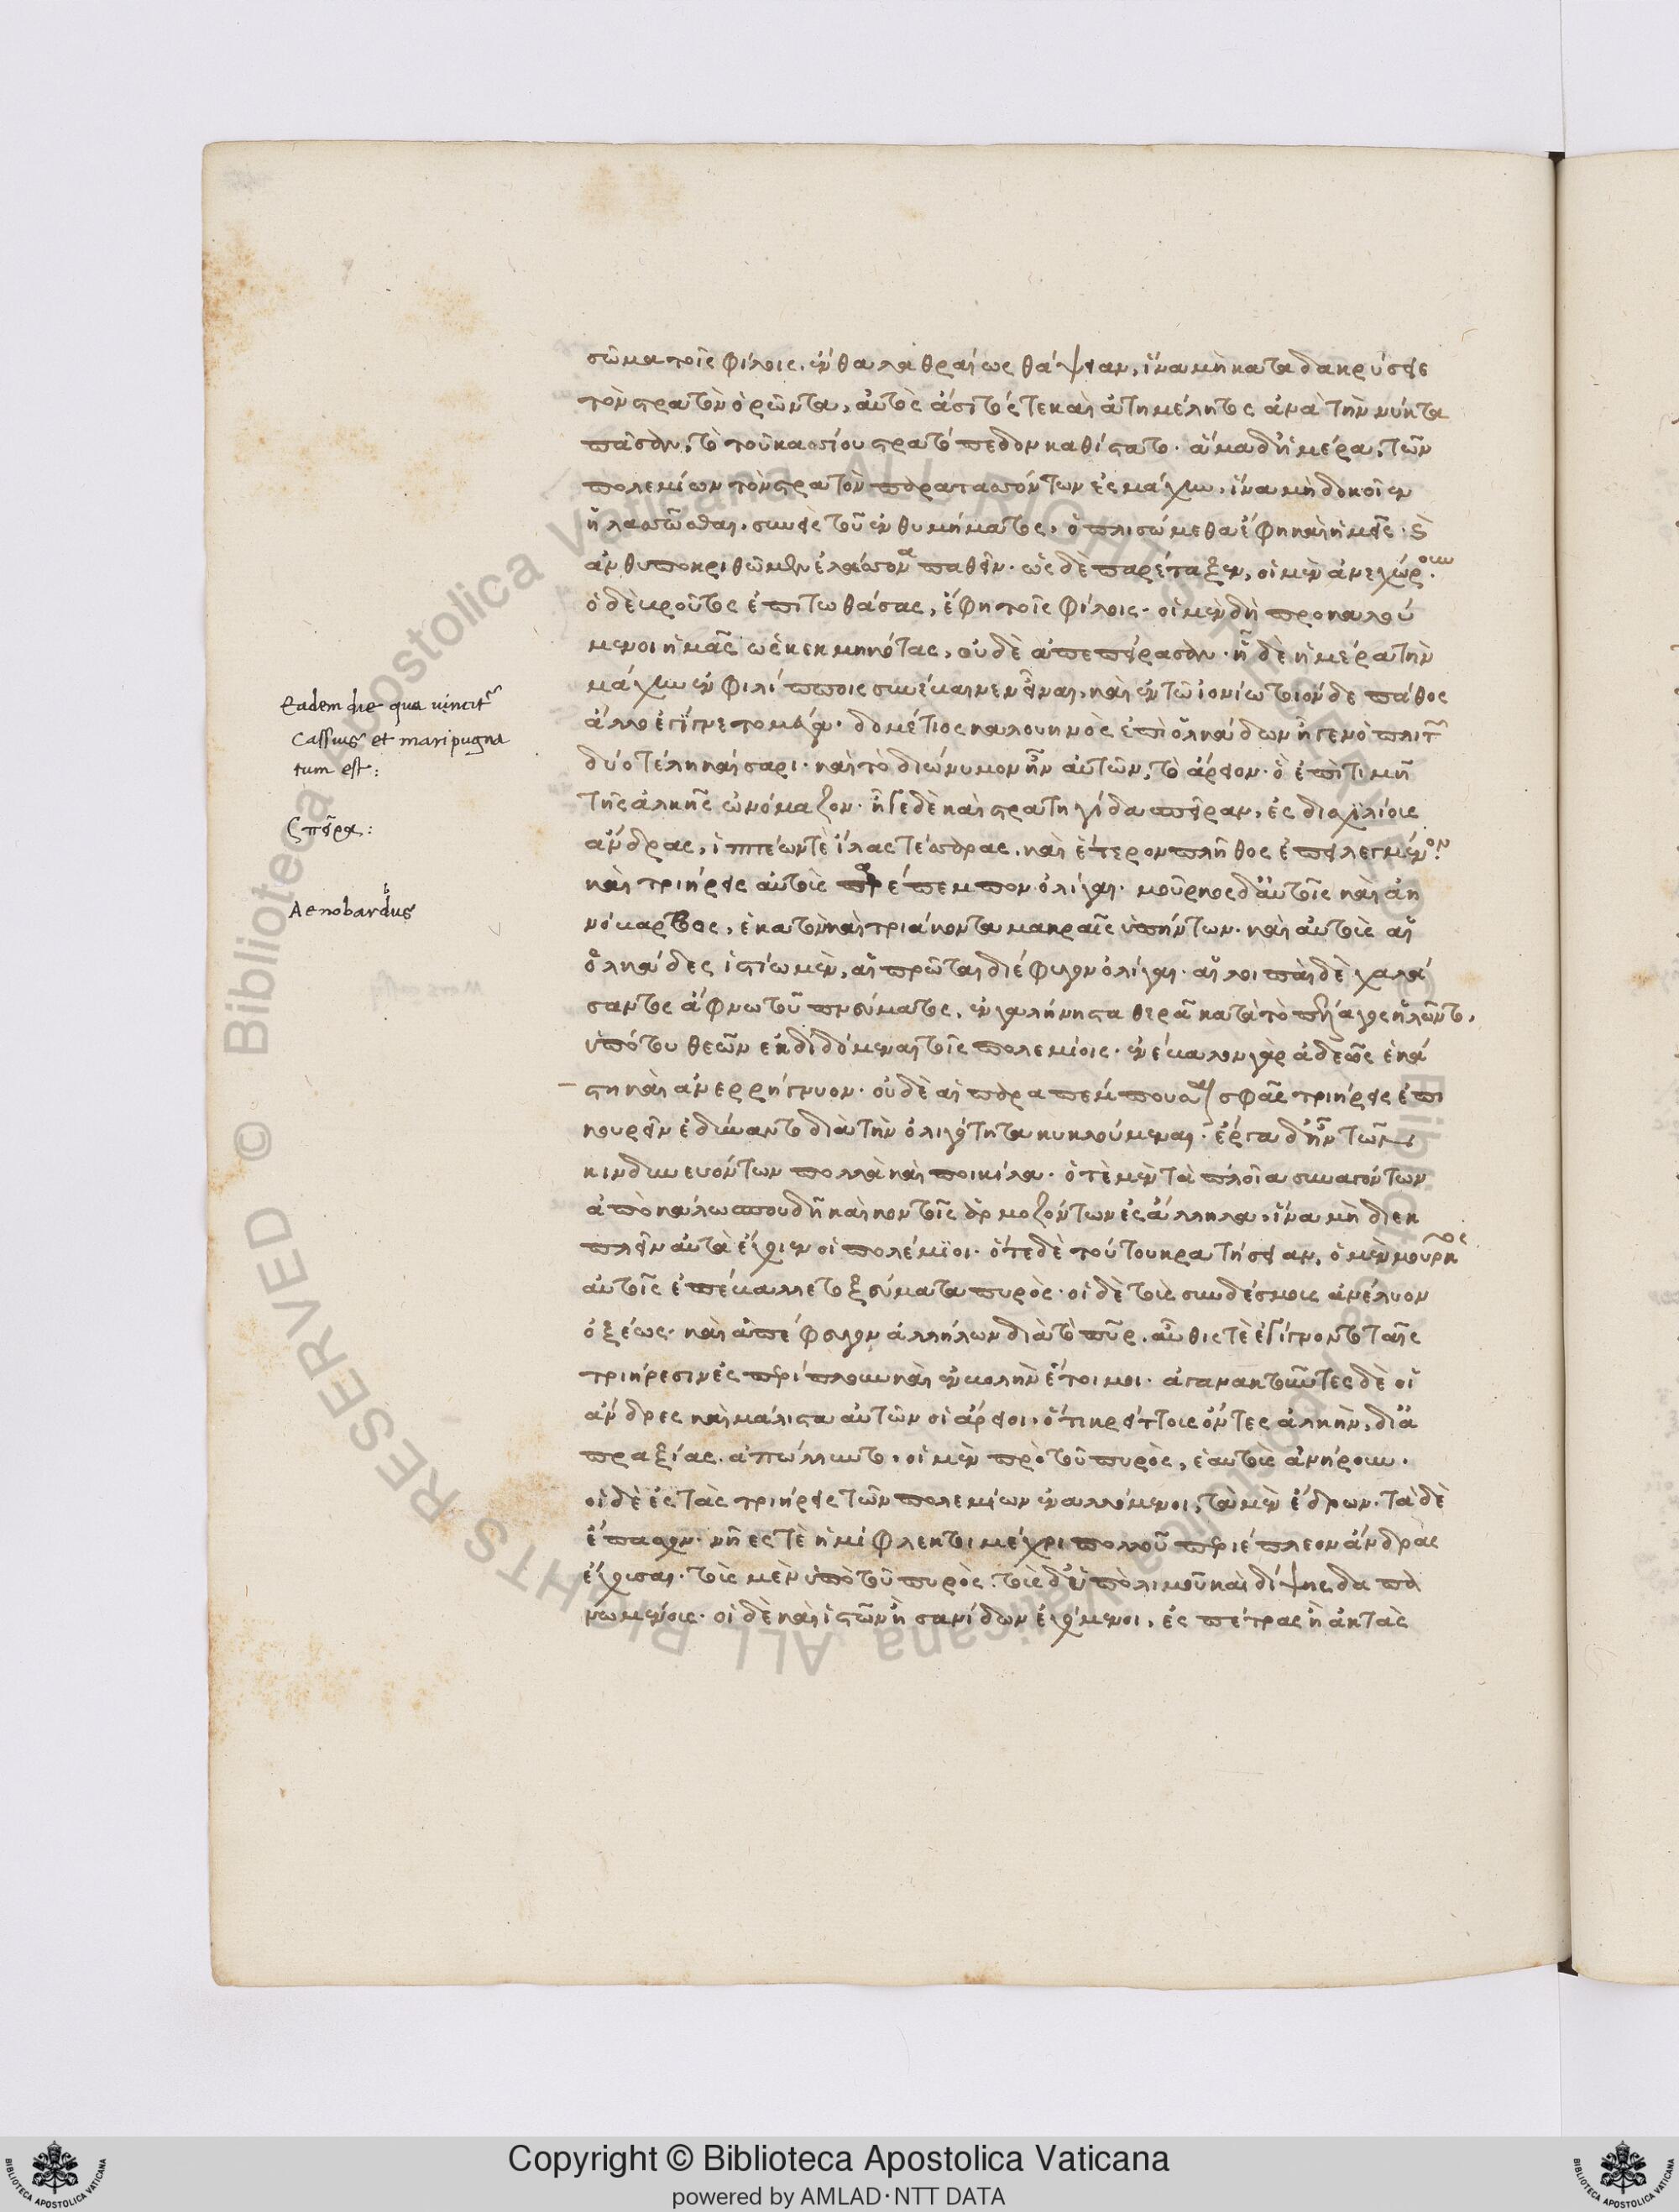 σῶμα τοῖς φίλοις, ἔνθα λαθραίως θάψειαν, ἵνα μὴ καταδακρύσειε
τὸν στρατὸν ὁρῶντα, αὐτὸς ἄσιτός τε καὶ ἀτημέλητος ἀνὰ τὴν νύκτα
πᾶσαν, τὸ τοῦ κασσίου στρατόπεδον καθίστατο. ἅμα δ' ἡμέρα, τῶν
πολεμίων τὸν στρατὸν παρατασσόντων ἐς μάχην, ἵνα μὴ δοκοῖεν
ἠλασσῶσθαι, συνεὶς τοῦ ἐνθυμήματος, ὁπλισώμεθα ἔφη καὶ ἡμεῖς. καὶ
ἀνθυποκριθῶμεν ἐλάσσονα παθεῖν. ὡς δὲ παρέταξεν, οἱ μὲν ἀνεχώρουν.
ὁ δὲ βροῦτος ἐπιτωθάσας, ἔφη τοῖς φίλοις. οἱ μὲν δὴ προκαλού
μενοι ἡμᾶς ὡς κεκμηκότας, οὐδὲ ἀπεπείρασαν. ἣ δὲ ἡμέρα τὴν
μάχην ἐν φιλίπποις συνέβαινεν εἶναι, καὶ ἐν τῷ ἰονίῳ τοιόνδε πάθος
ἄλλο ἐγίγνετο μέγα. δομέτιος καλουηνὸς ἐπὶ ὁλκάδων ἦγεν ὁπλιτῶν
δύο τέλη καίσαρι. καὶ τὸ διώνυμον ἦν αὐτῶν, τὸ ἄρειον. ὃ ἐπὶ τιμῇ
τῆς ἀλκῆς ὠνόμαζον. ἦγε δὲ καὶ στρατηγίδα σπεῖραν, ἐς δισχιλίοις
ἄνδρας, ἱππέων τε ἴλας τέσσαρας, καὶ ἕτερον πλῆθος ἐπειλεγμένον.
καὶ τριήρεις αὐτοὺς παρέπεμπον ὀλίγαι. μοῦρκος δ' αὐτοῖς καὶ ἀη
νόβαρβος, ἑκατὸν καὶ τριάκοντα μακραῖς ὑπήντων. καὶ αὐτοὺς αἱ
ὁλκάδες ἱστίῳ μὲν, αἱ πρῶται διέφυγον ὀλίγαι. αἱ λοιπαὶ δὲ χαλά
σαντος ἄφνω τοῦ πνεύματος, ἐν γαλήνῃ σταθερᾷ κατὰ τὸ πέλαγος ἠλῶντο,
ὑπό του θεῶν ἐκδιδόμεναι τοῖς πολεμίοις. ἐνέβαλον γὰρ ἀδεῶς ἑκά
στῃ καὶ ἀνερρήγνυον. οὐδὲ αἱ παραπέμπουσαι σφᾶς τριήρεις ἐπι
κουρεῖν ἐδύναντο διὰ τὴν ὀλιγότητα κυκλούμεναι. ἔργα δ' ἦν τῶν
κινδυνευόντων πολλὰ καὶ ποικίλα. ὁτὲ μὲν τὰ πλοῖα συναγόντων
ἀπὸ κάλω σπουδῇ καὶ κοντοῖς ἁρμοζόντων ἐς ἄλληλα, ἵνα μὴ διεκ
πλεῖν αὐτὰ ἔχοιεν οἱ πολέμιοι. ὅτε δὲ τούτου κρατήσειαν, ὁ μὲν μοῦρκος
αὐτοῖς ἐπέβαλλε τοξεύματα πυρὸς. οἱ δὲ τοὺς συνδέσμους ἀνέλυον
ὀξέως. καὶ ἀπέφευγον ἀλλήλων διὰ τὸ πῦρ. αὖθίς τε ἐγίγνοντο ταῖς
τριήρεσιν ἐς περίπλουν καὶ ἐμβολὴν ἕτοιμοι. ἀγανακτοῦντες δὲ οἱ
ἄνδρες καὶ μάλιστα αὐτῶν οἱ ἄρειοι, ὅτι κρείττους ὄντες ἀλκὴν, δι' ἀ
πραξίας ἀπώλλυντο, οἱ μὲν πρὸ τοῦ πυρὸς, ἑαυτοὺς ἀνήρουν.
οἱ δὲ ἐς τὰς τριήρεις τῶν πολεμίων ἐναλλόμενοι, τὰ μὲν ἔδρων. τὰ δὲ
ἔπασχον. νῆές τε ἡμίφλεκτοι μέχρι πολλοῦ περιέπλεον ἄνδρας
ἔχουσαι. τοὺς μὲν ὑπὸ τοῦ πυρὸς. τοὺς δ' ὑπὸ λιμοῦ καὶ δίψης δαπα
νωμένους. οἱ δὲ καὶ ἱστῶν ἢ σανίδων ἐχόμενοι, ἐς πέτρας ἢ ἀκτὰς
Eadem die qua uincitur
Cassius et mari pugna
tum est:
Σπεῖρα:
Aenobarbus
Copyright © Biblioteca Apostolica Vaticana
powered by AMLAD·NTT DATA